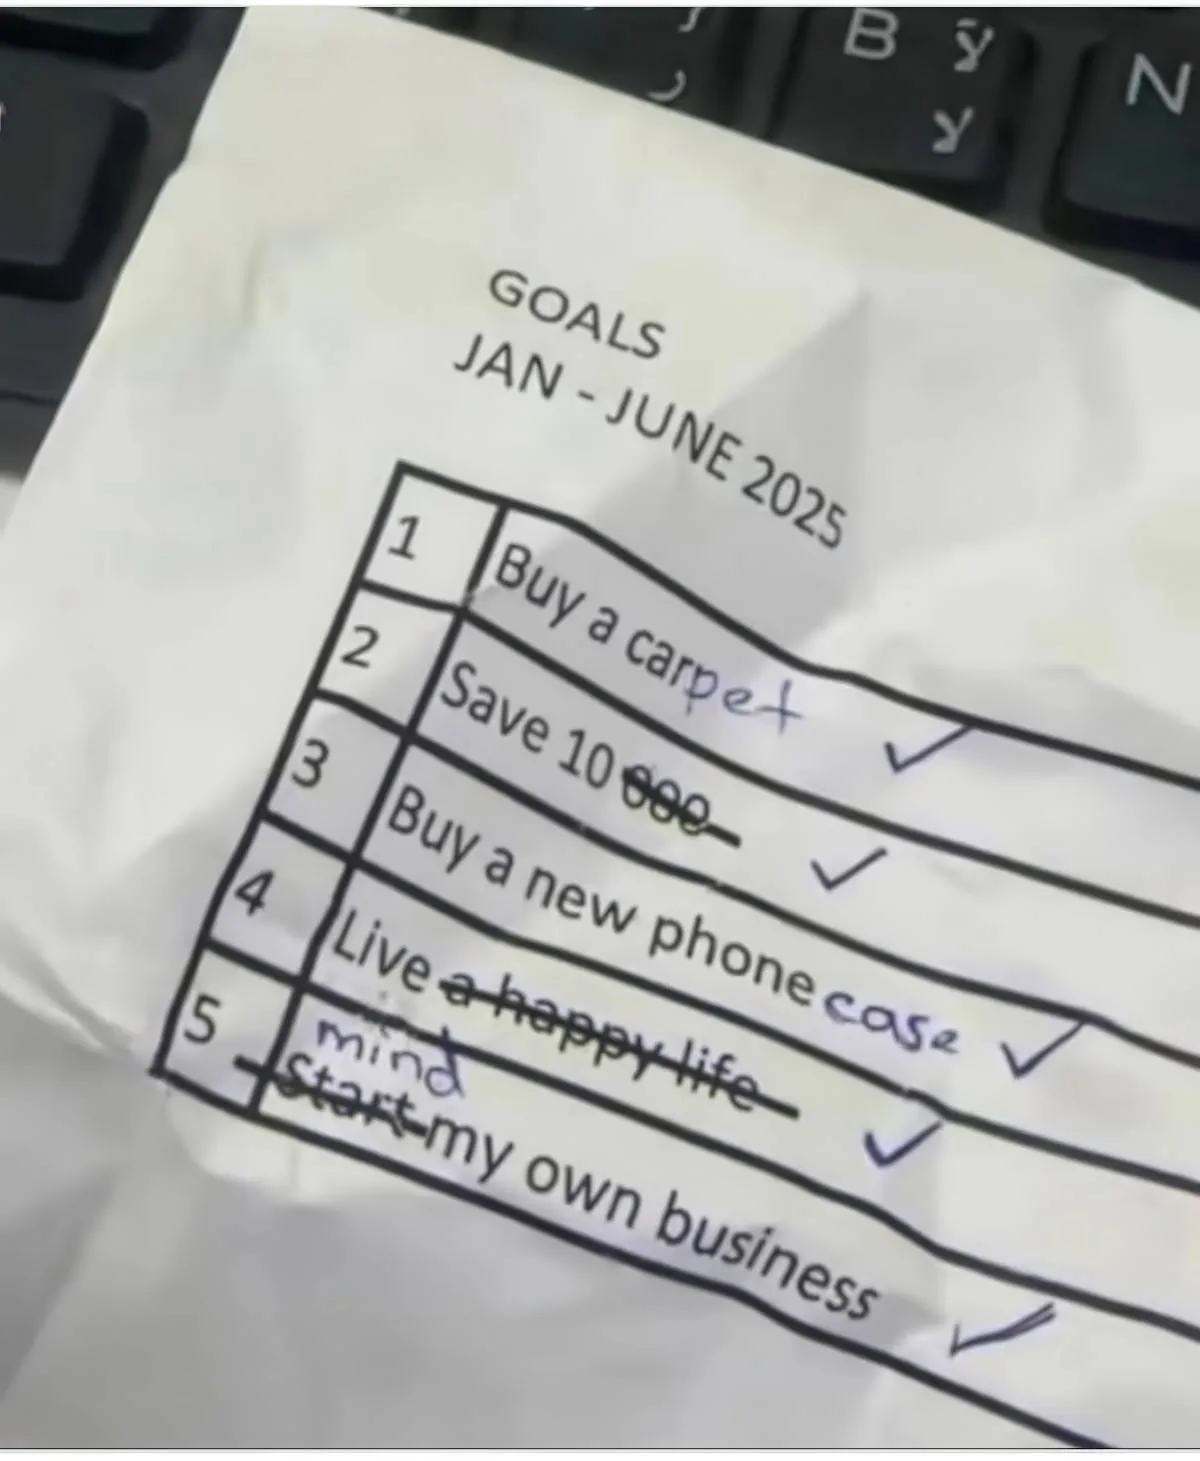 B لآ
لا
N
GOALS
JAN - JUNE 2025
1 Buy a carpet ✓
2 Save 10 000 ✓
3 Buy a new phone case ✓
4 Live a happy life ✓
mind
5 Start my own business ✓